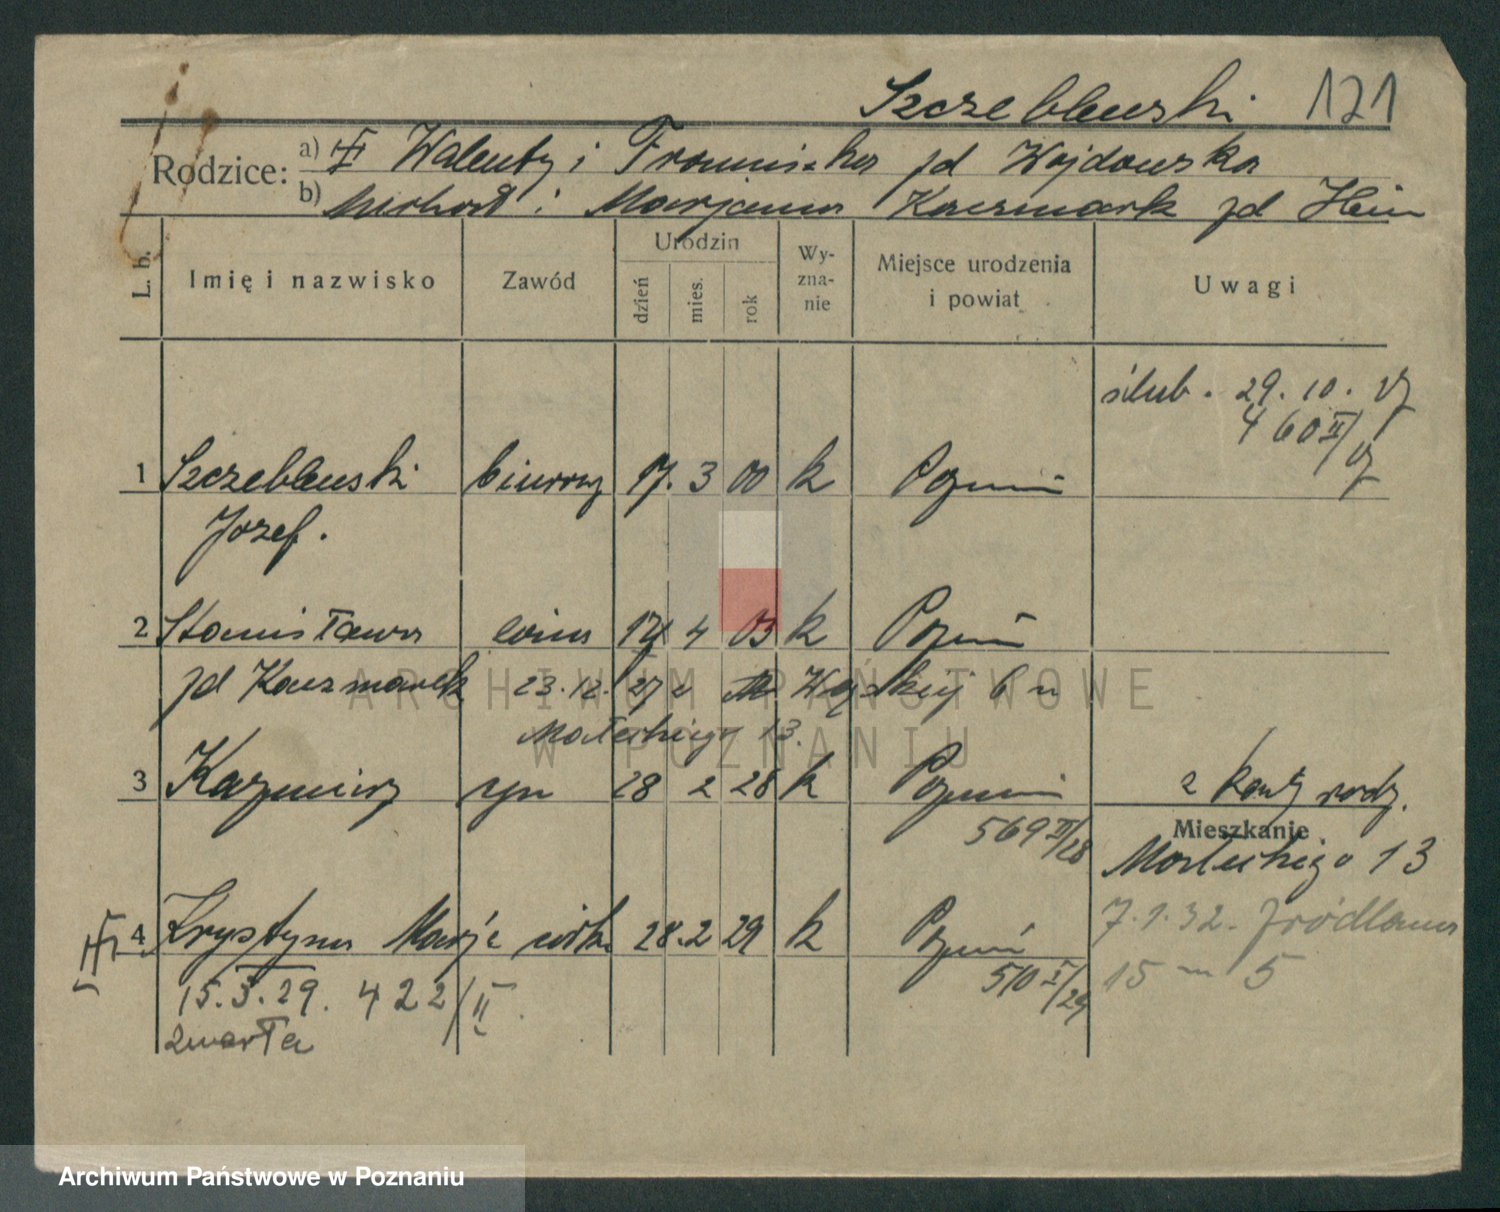 Szczeblewski 121
Rodzice: a) Walenty i Franciszka zd Wojdowska
b) Michał i Marjanna Kaczmarek zd Hein
L. b. Imię i nazwisko Zawód Urodzin dzień mies. rok Wy-zna-nie Miejsce urodzenia i powiat Uwagi
ślub. 29. 10. 27
460 II/27
1 Szczeblewski biurowy 17. 3 00 k Poznań
Józef.
2 Stanisława żona 14 4 03 k Poznań
zd Kaczmarek 23.12. 27 z 6 n
Małeckiego 13.
3 Kazimierz syn 28 2 28 k Poznań z karty rodz.
569 II/28
Mieszkanie
Małeckiego 13
4 Krystyna Marja córka 28. 2 29 k Poznań
7.1.32. Źródlana
510 I/29
15 m 5
15.3.29. 422/II.
zmarła
ARCHIWUM PAŃSTWOWE
W POZNANIU
Archiwum Państwowe w Poznaniu